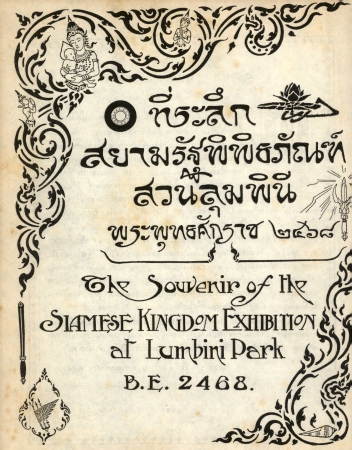 ที่ระลึก
สยามรัฐพิพิธภัณฑ์
สวนลุมพินี
พระพุทธศักราช ๒๔๖๘
The Souvenir of the
SIAMESE KINGDOM EXHIBITION
at Lumbini Park
B.E. 2468.